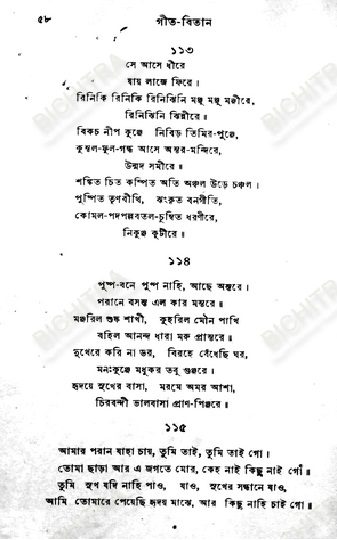 ৫৮
গীত-বিতান
১১৩
সে আসে ধীরে
যায় লাজে ফিরে।
রিনিকি রিনিকি রিনিঝিনি মঞ্জু মঞ্জু মঞ্জীরে,
রিনিঝিনি ঝিল্লীরে।
বিকচ নীপ কুঞ্জে নিবিড় তিমির-পুঞ্জে,
কুন্তল-ফুল-গন্ধ আসে অন্তর-মন্দিরে,
উন্মদ সমীরে॥
শঙ্কিত চিত কম্পিত অতি অঞ্চল উড়ে চঞ্চল।
পুষ্পিত তৃণবীথি, ঝংকৃত বনগীতি,
কোমল-পদপল্লবতল-চুম্বিত ধরণীরে,
নিকুঞ্জ কুটীরে॥
১১৪
পুষ্প-বনে পুষ্প নাহি, আছে অন্তরে।
পরানে বসন্ত এল কার মন্তরে॥
মঞ্জরিল শুষ্ক শাখী, কুহরিল মৌন পাখি
বহিল আনন্দ ধারা মরু প্রান্তরে॥
দুখেরে করি না ডর, বিরহে বেঁধেছি ঘর,
মনঃকুঞ্জে মধুকর তবু গুঞ্জরে।
হৃদয়ে সুখের বাসা, মরমে অমর আশা,
চিরবন্দী ভালবাসা প্রাণ-পিঞ্জরে॥
১১৫
আমার পরান যাহা চায়, তুমি তাই, তুমি তাই গো।
তোমা ছাড়া আর এ জগতে মোর, কেহ নাই কিছু নাই গো॥
তুমি সুখ যদি নাহি পাও, যাও, সুখের সন্ধানে যাও,
আমি তোমারে পেয়েছি হৃদয় মাঝে, আর কিছু নাহি চাই গো॥
BICHITRA
BICHITRA
BICHITRA
BICHITRA